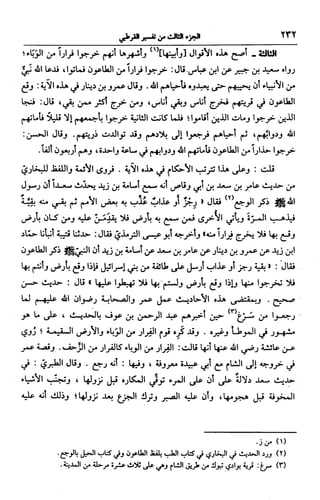 ٢٣٢ الجزء الثالث من تفسير القرطبي
الثالثة ـ أصح هذه الأقوال (وأبينها)(١) وأشهرها أنهم خرجوا فراراً من الوَبَاء؛
رواه سعيد بن جبير عن ابن عباس قال: خرجوا فراراً من الطاعون فماتوا، فدعا الله نبيٌّ
من الأنبياء أن يحييهم حتى يعبدوه فأحياهم الله. وقال عمرو بن دينار في هذه الآية: وقع
الطاعون في قريتهم فخرج أناس وبقي أناس، ومن خرج أكثر ممن بقي، قال: فنجا
الذين خرجوا ومات الذين أقاموا؛ فلما كانت الثانية خرجوا بأجمعهم إلا قليلاً فأماتهم
الله ودوابّهم، ثم أحياهم فرجعوا إلى بلادهم وقد توالدت ذريتهم. وقال الحسن:
خرجوا حذاراً من الطاعون فأماتهم الله ودوابهم في ساعة واحدة، وهم أربعون ألفاً.
قلت: وعلى هذا تترتب الأحكام في هذه الآية. فروى الأئمة واللفظ للبخاريّ
من حديث عامر بن سعد بن أبي وقاص أنه سمع أسامة بن زيد يحدّث سعداً أن رسول
الله ﷺ ذكر الوجع(٢) فقال «رِجْزٌ أو عذابٌ عُذِّب به بعض الأمم ثم بقي منه بقيّة
فيذهب المرّة ويأتي الأخرى فمن سمع به بأرض فلا يقدَمَنّ عليه ومن كان بأرض
وقع بها فلا يخرج فراراً منه» وأخرجه أبو عيسى الترمذيّ فقال: حدّثنا قتيبة أنبأنا حماد
ابن زيد عن عمرو بن دينار عن عامر بن سعد عن أسامة بن زيد أن النبيّ ﷺ ذكر الطاعون
فقال: «بقية رجز أو عذاب أرسل على طائفة من بني إسرائيل فإذا وقع بأرض وأنتم بها
فلا تخرجوا منها وإذا وقع بأرض ولستم بها فلا تهبطوا عليها» قال: حديث حسن
صحيح. وبمقتضى هذه الأحاديث عمل عمر والصحابة رضوان الله عليهم لما
رجعوا من سَرْغ(٣) حين أخبرهم عبد الرحمن بن عوف بالحديث، على ما هو
مشهور في الموطأ وغيره. وقد كَرِه قوم الفِرار من الوَباء والأرض السقيمة؛ رُوِي
عن عائشة رضي الله عنها أنها قالت: الفِرار من الوباء كالفرار من الزَّحف. وقصة عمر
في خروجه إلى الشام مع أبي عبيدة معروفة، وفيها: أنه رجع. وقال الطبريّ: في
حديث سعد دلالةٌ على أن على المرء توقّي المكاره قبل نزولها، وتجنّب الأشياء
المخوفة قبل هجومها، وأن عليه الصبر وترك الجزع بعد نزولها؛ وذلك أنه عليه
(١) من ز.
(٢) ورد الحديث في البخاري في كتاب الطب بلفظ الطاعون وفي كتاب الحيل بالوجع.
(٣) سرغ: قرية بوادي تبوك من طريق الشام وهي على ثلاث عشرة مرحلة من المدينة.